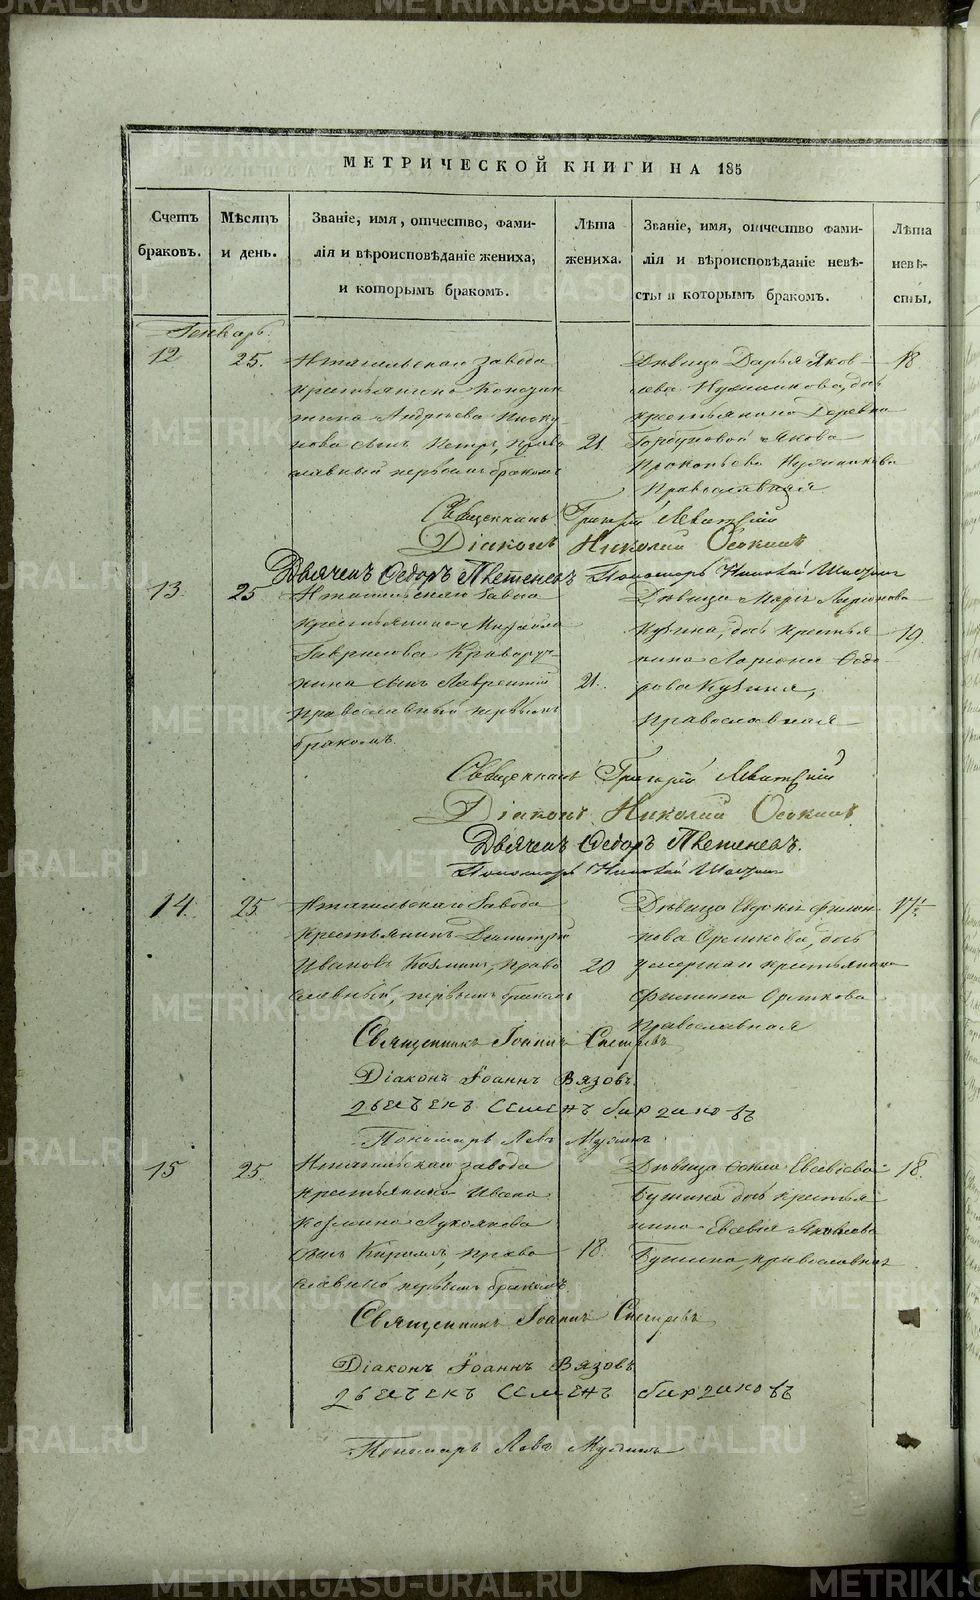 METRIKI.GASO-URAL.RU
МЕТРИЧЕСКОЙ КНИГИ НА 185
Счетъ браковъ.
Мѣсяцъ и день.
Званіе, имя, отчество, фами-
лія и вѣроисповѣданіе жениха,
и которымъ бракомъ.
Лѣта жениха.
Званіе, имя, отчество фами-
лія и вѣроисповѣданіе невѣ-
сты и которымъ бракомъ.
Лѣта невѣ-
сты.
Генварь.
12
25.
Нтагильскаго завода
крестьянина Констан
тина Андреева Писку
нова сынъ Петръ, право
славный первымъ бракомъ
21.
Дѣвица Дарья Яков
лева дочь
крестьянина Деревни
Горбуновой Якова
Прокопьева
Православная
18
Священникъ Григорій Левитскій
Діаконъ Николай Осокинъ
Дьячекъ Ѳедоръ Пономарь Николай
13.
25
Нтагильскаго Завода
крестьянина Михаила
Гаврилова
сынъ Лаврентій
православный первымъ
бракомъ.
21.
Дѣвица Марія Ларіонова
Кузина, дочь крестья
нина Ларіона Ѳедо
рова Кузина,
православная
19.
Священникъ Григорій Левитскій
Діаконъ Николай Осокинъ
Дьячекъ Ѳедоръ
Пономарь Николай
14.
25.
Нтагильскаго Завода
Крестьянинъ Димитрій
Ивановъ Козминъ, право
славный, первымъ бракомъ
20
Дѣвица
дочь
умершаго крестьянина
православная
17½
Священникъ Іоаннъ Снегиревъ
Діаконъ Іоаннъ Вязовъ.
Дьечекъ Семенъ
Пономарь Левъ
15
25.
Нтагильскаго завода
крестьянина Ивана
Козмина Лукоянова
сынъ Кирилъ, право
славный первымъ бракомъ.
18.
Дѣвица Ѳекла Евсевіева
дочь крестья
нина Евсевія Яковлева
православная
18.
Священникъ Іоаннъ Снегиревъ
Діаконъ Іоаннъ Вязовъ
Дьечекъ Семенъ
Пономарь Левъ